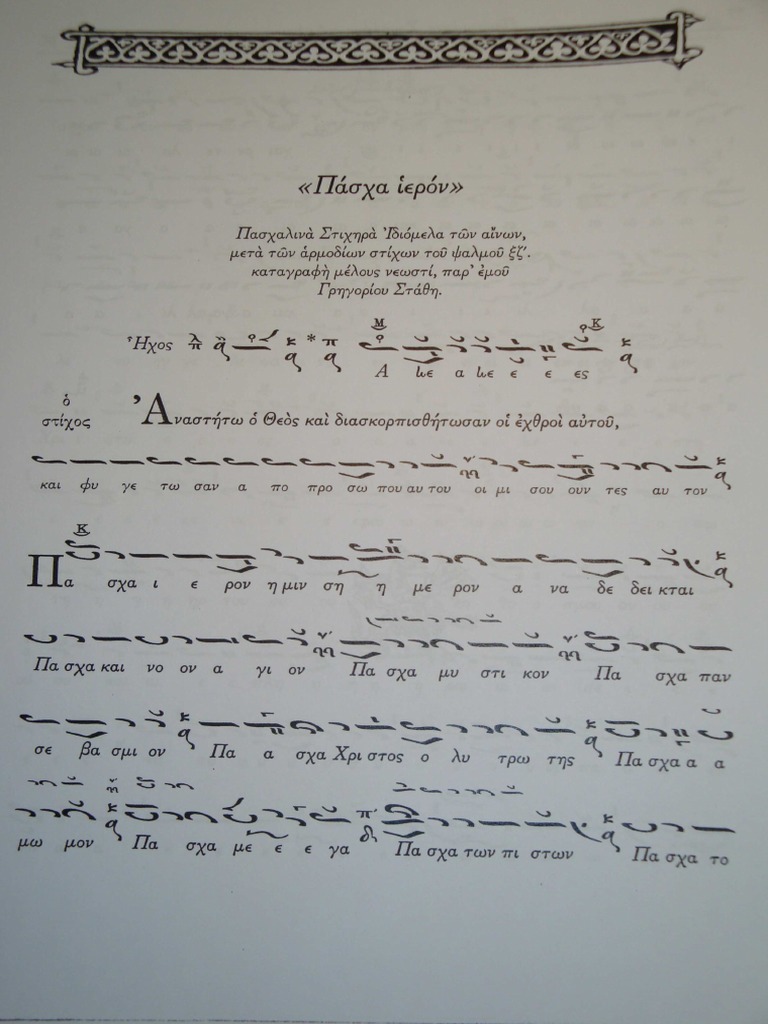 «Πάσχα ἱερόν»
Πασχαλινὰ Στιχηρὰ Ἰδιόμελα τῶν αἴνων,
μετὰ τῶν ἁρμοδίων στίχων τοῦ ψαλμοῦ ξζ΄.
καταγραφὴ μέλους νεωστί, παρ' ἐμοῦ
Γρηγορίου Στάθη.
Ἦχος
Α νε α νε ε ε ες
ὁ στίχος
Ἀναστήτω ὁ Θεὸς καὶ διασκορπισθήτωσαν οἱ ἐχθροὶ αὐτοῦ,
και φυ γε τω σαν α πο προ σω που αυ του οι μι σου ουν τες αυ τον
Πα σχα ι ε ρον η μιν ση η με ρον α να δε δει κται
Πα σχα και νο ον α γι ον Πα σχα μυ στι κον Πα σχα παν
σε βα σμι ον Πα α σχα Χρι στος ο λυ τρω της Πα σχα α α
μω μον Πα σχα με ε ε γα Πα σχα των πι στων Πα σχα το